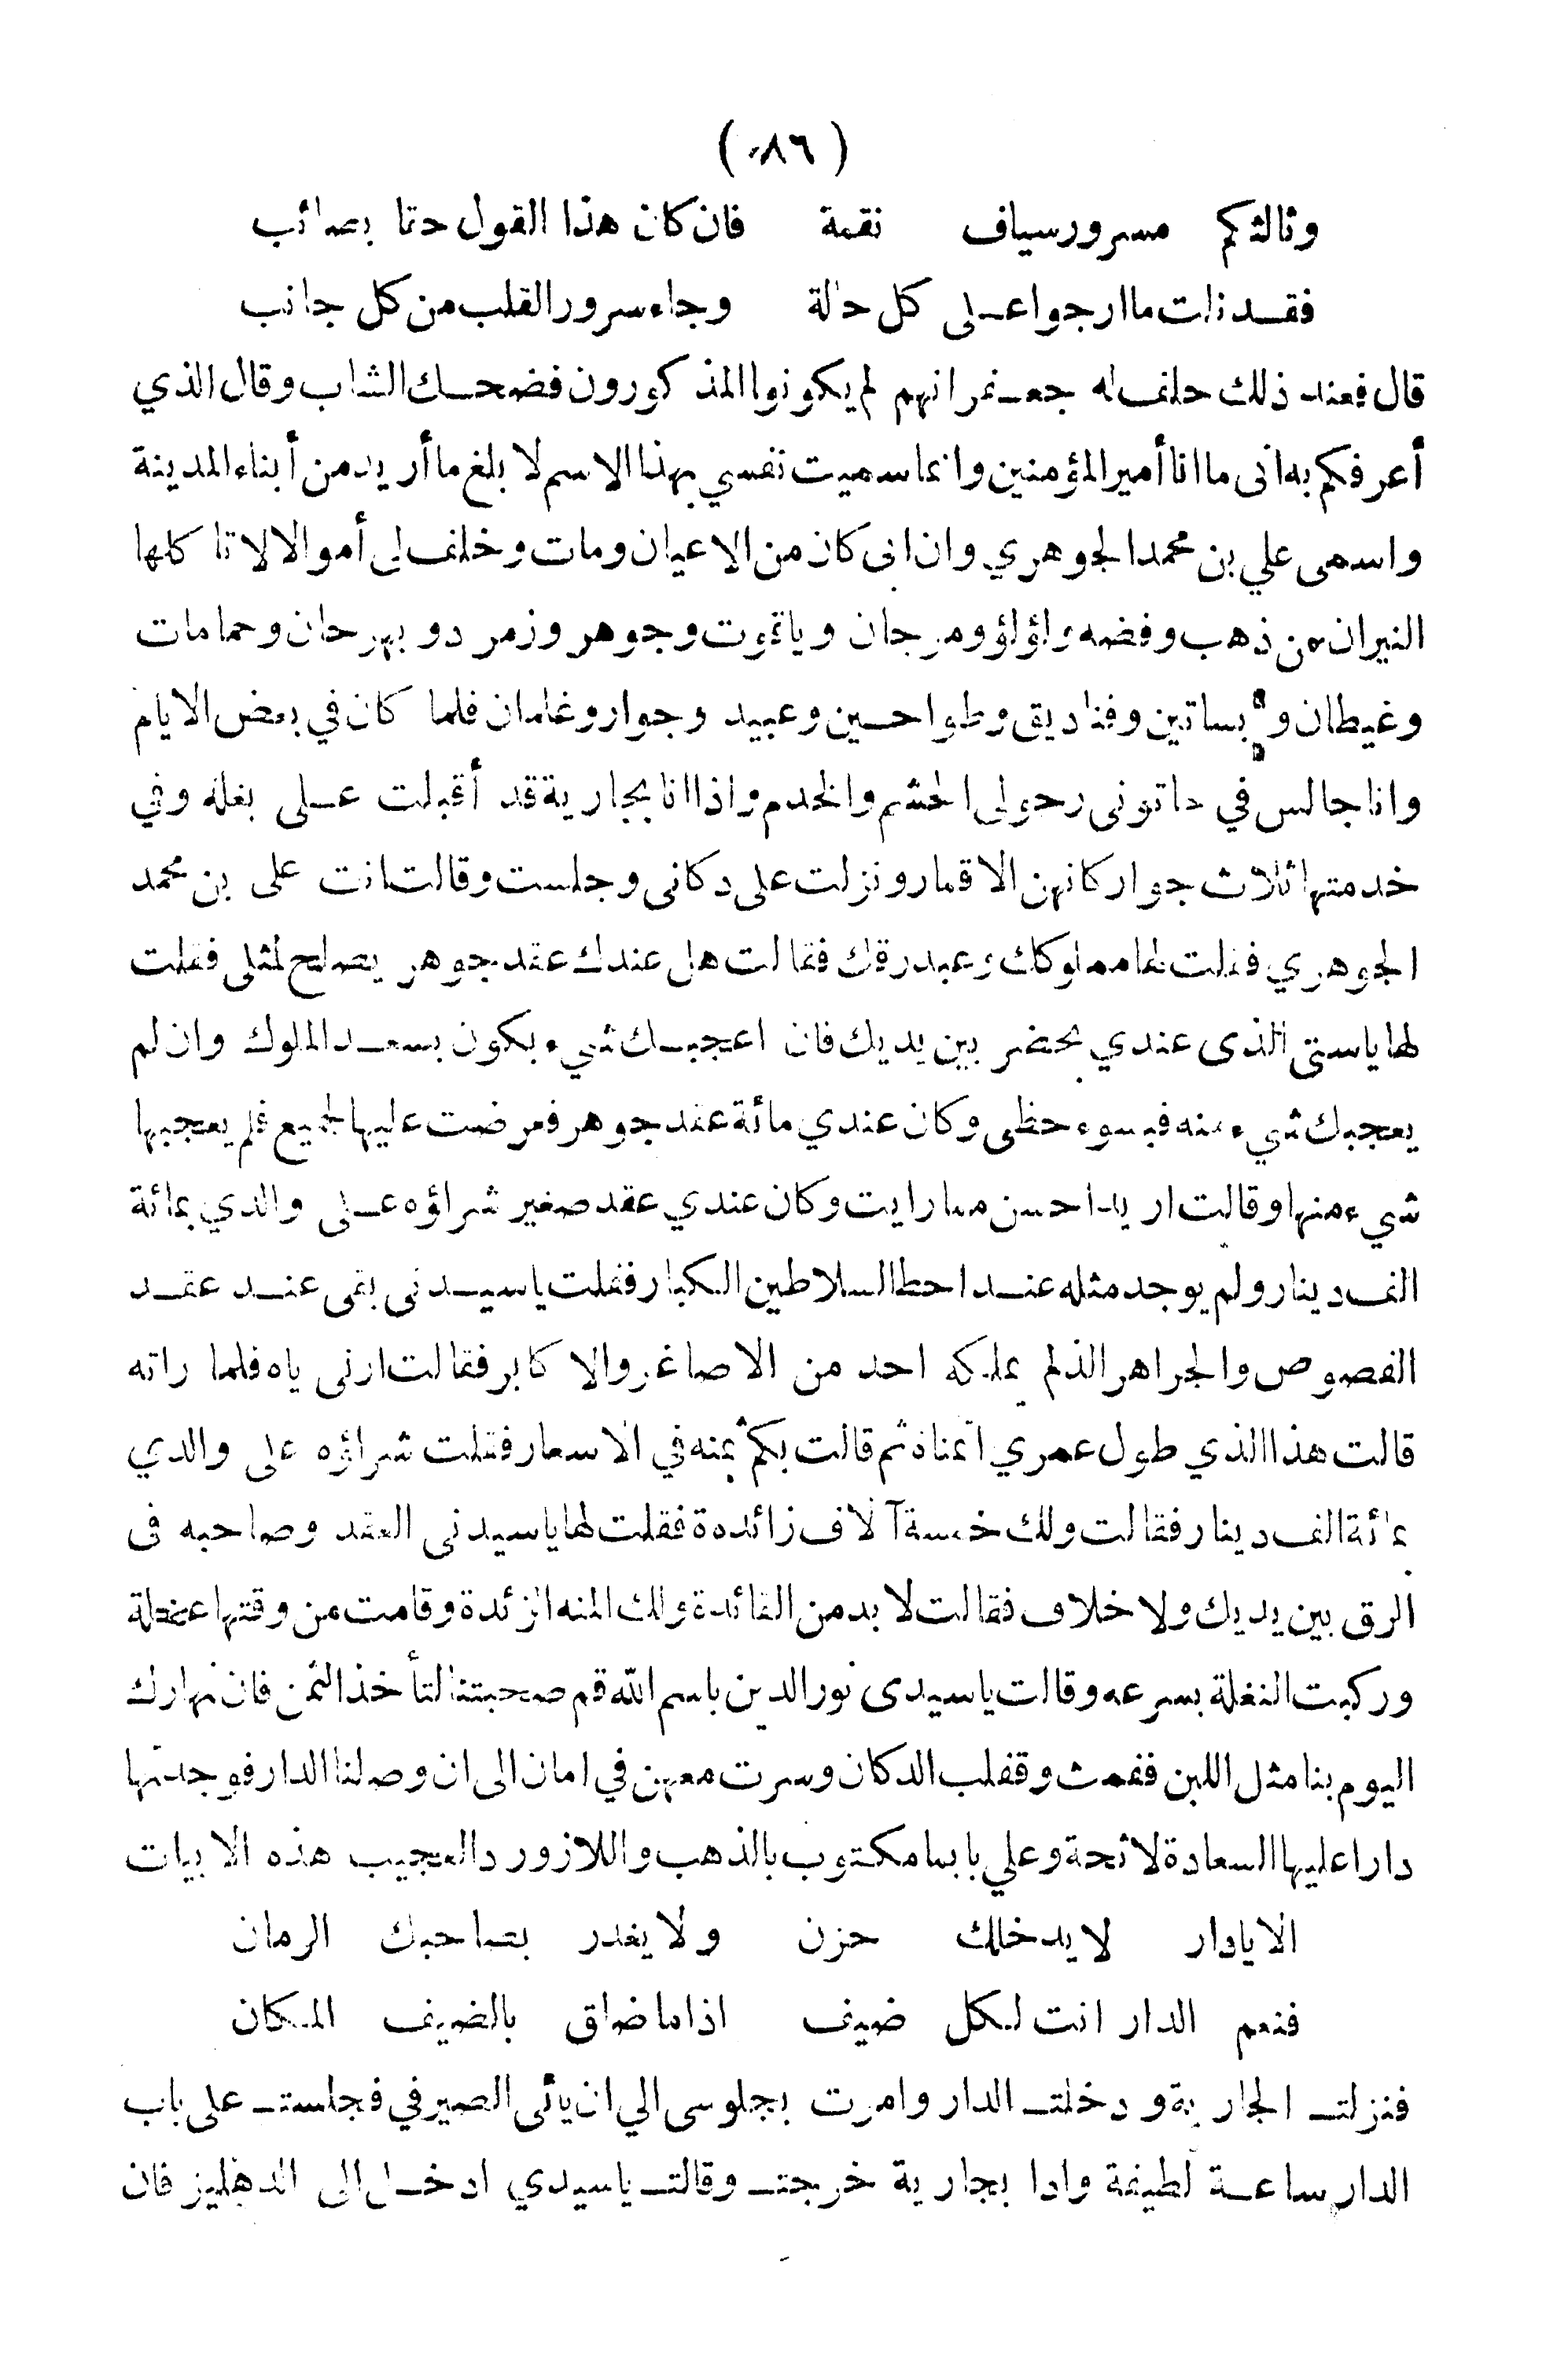 ( ١٨٦ )
وثالثكم مسرور سياف نقمة فان كان هذا القول حقا بصائب
فقد نلت ما ارجوا على كل حالة وجاء سرور القلب من كل جانب
قال فعند ذلك حلف له جعفر انهم لم يكونوا المذكورون فضحك الشاب وقال الذي
أعرفكم به انى ما انا أمير المؤمنين وانما سميت نفسي بهذا الاسم لا بلغ ما أريد من أبناء المدينة
واسمى علي بن محمد الجوهري وان ابى كان من الاعيان ومات وخلف لى أموالا لا تاكلها
النيران من ذهب وفضه ولؤلؤ ومرجان وياقوت وجوهر وزمرد وبهرحان وحمامات
وغيطان وبساتين وفناديق وطواحين وعبيد وجوار وغلمان فلما كان في بعض الايام
وانا جالس في حاتونى وحولى الحشم والخدم واذا انا بجارية قد أقبلت على بغلة وفي
خدمتها ثلاث جوار كانهن الاقمار ونزلت على دكانى وجلست وقالت انت على بن محمد
الجوهري فقلت لها مملوكك وعبد رقك فقالت هل عندك عقد جوهر يصلح لمثلى فقلت
لها ياستى الذى عندي يحضر بين يديك فان اعجبك شيء بكون بسعد الملوك وان لم
يعجبك شيء منه فبسوء حظى وكان عندي مائة عقد جوهر فعرضت عليها الجميع فلم يعجبها
شيء منها وقالت اريد احسن مما رايت وكان عندي عقد صغير شراؤه على والدي بمائة
الف دينار ولم يوجد مثله عند احط السلاطين الكبار فقلت ياسيدنى بقى عند عقد
الفصوص والجراهر الذلم يملكه احد من الاصاغر والاكابر فقالت ارنى ياه فلما راته
قالت هذا الذي طول عمري اتمناه ثم قالت بكم ثمنه في الاسعار فقلت شراؤه على والدي
بمائة الف دينار فقالت ولك خمسة آلاف زائدة فقلت لها ياسيدنى العقد وصاحبه فى
الرق بين يديك ولا خلاف فقالت لا بد من الفائدة ولك المنه الزئدة وقامت من وقتها عجلة
وركبت النغلة بسرعه وقالت ياسيدى نور الدين باسم الله قم صحبتنا لتأخذ الثمن فان نهارك
اليوم بنا مثل اللبن فقمت وقفلب الدكان وسرت معهن في امان الى ان وصلنا الدار فوجدتها
دارا عليها السعادة لائحة وعلي بابها مكتوب بالذهب واللازورد العجيب هذه الابيات
الا يادار لا يدخلك حزن ولا يغدر بصاحبك الزمان
فنعم الدار انت لكل ضيف اذا ما ضاق بالضيف المكان
فنزلت الجارية ودخلت الدار وامرت بجلوسى الي ان يأتى الصيرفي فجلست على باب
الدار ساعة لطيفة وادا بجارية خرجت وقالت ياسيدي ادخل الى الدهليز فان